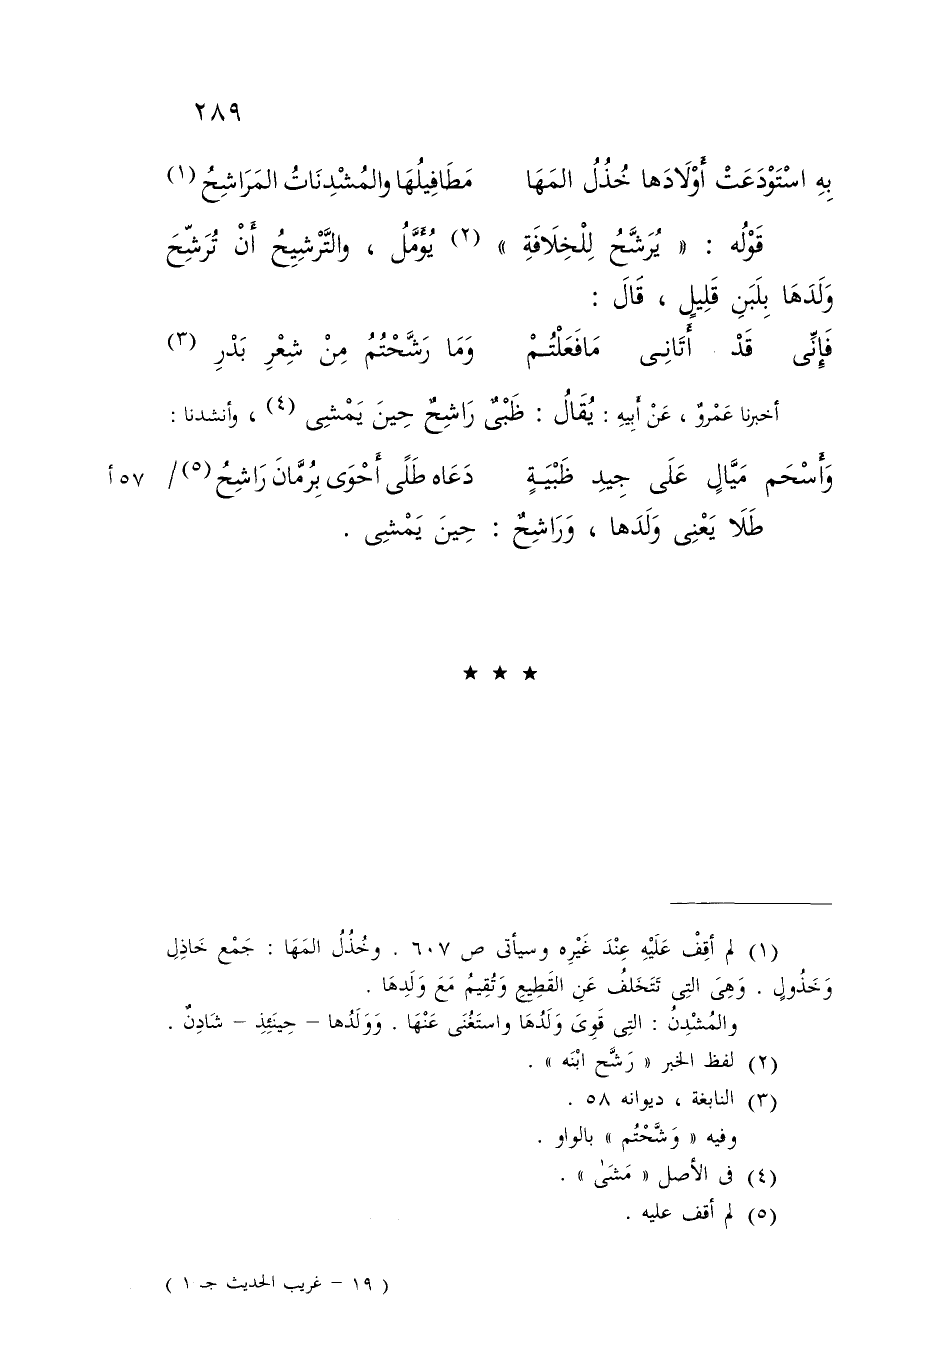 ٢٨٩
بِهِ اسْتَوْدَعَتْ أَوْلَادَها خُذُلُ المَهَا مَطَافِيلُهَا والمُشْدِنَاتُ المَرَاشِحُ (١)
قَوْلُه : « يُرَشَّحُ لِلْخِلَافَةِ » (٢) يُؤَمَّلُ ، والتَّرْشِيحُ أَنْ تُرَشِّحَ
وَلَدَهَا بِلَبَنِ قَلِيلٍ ، قَالَ :
فَإِنِّى قَدْ أَتَانِى مَافَعَلْتُمْ وَمَا رَشَّحْتُمُ مِنْ شِعْرِ بَدْرِ (٣)
أخبرنا عَمْروٌ ، عَنْ أَبِيهِ : يُقَالُ : ظَبْىٌ رَاشِحٌ حِينَ يَمْشِى (٤) ، وأنشدنا :
وَأَسْحَم مَيَّالٍ عَلَى جِيدِ ظَبْيَةٍ دَعَاه طَلًى أَحْوَى بِرُمَّانَ رَاشِحُ (٥)/ ٥٧ أ
طَلَا يَعْنِى وَلَدَها ، وَرَاشِحٌ : حِينَ يَمْشِى .
★ ★ ★
(١) لم أقِفْ عَلَيْهِ عِنْدَ غَيْرِه وسيأتى ص ٦٠٧ . وخُذُلُ المَهَا : جَمْع خَاذِلِ
وَخَذُولٍ . وَهِىَ التِى تَتَخَلفُ عَنِ القَطِيعِ وَتُقِيمُ مَعَ وَلَدِهَا .
والمُشْدِنُ : التِى قَوِىَ وَلَدُهَا واستَغْنَى عَنْهَا . وَوَلَدُها – حِينَئِذِ – شَادِنٌ .
(٢) لفظ الخبر « رَشَّح ابْنَه » .
(٣) النابغة ، ديوانه ٥٨ .
وفيه « وَشَّحْتُم » بالواو .
(٤) فى الأصل « مَشَىٰ » .
(٥) لم أقف عليه .
( ١٩ – غريب الحديث جـ ١ )